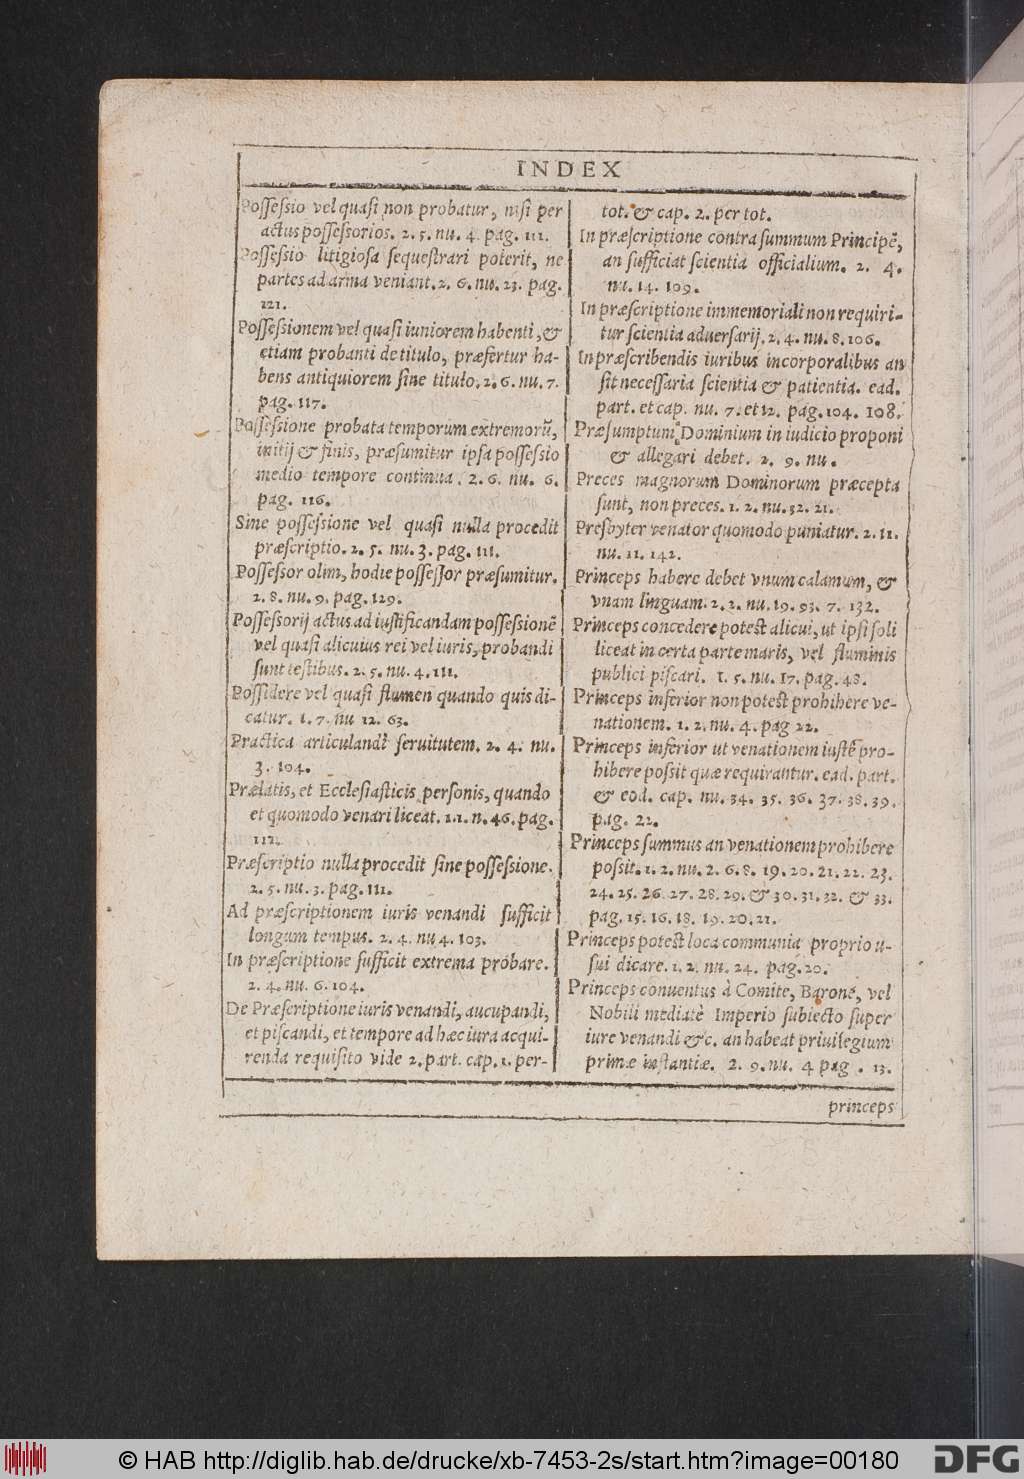 INDEX
Possessio vel quasi non probatur, nisi per
actus possessorios. 2. 5. nu. 4. pag. 111.
Possessio litigiosa sequestrari poterit, ne
partes ad arma veniant. 2. 6. nu. 23. pag.
121.
Possessionem vel quasi iuniorem habenti, &
etiam probanti de titulo, præfertur ha-
bens antiquiorem sine titulo. 2. 6. nu. 7.
pag. 117.
Possessione probata temporum extremorũ,
initij & finis, præsumitur ipsa possessio
medio tempore continua. 2. 6. nu. 6.
pag. 116.
Sine possessione vel quasi nulla procedit
præscriptio. 2. 5. nu. 3. pag. 111.
Possessor olim, hodie possessor præsumitur.
2. 8. nu. 9. pag. 129.
Possessorij actus ad iustificandam possessionẽ
vel quasi alicuius rei vel iuris, probandi
sunt testibus. 2. 5. nu. 4. 111.
Possidere vel quasi flumen quando quis di-
catur. 1. 7. nu 12. 63.
Practica articulandi seruitutem. 2. 4. nu.
3. 104.
Prælatis, et Ecclesiasticis personis, quando
et quomodo venari liceat. 1.1. n. 46. pag.
112.
Præscriptio nulla procedit sine possessione.
2. 5. nu. 3. pag. 111.
Ad præscriptionem iuris venandi sufficit
longum tempus. 2. 4. nu 4. 103.
In præscriptione sufficit extrema probare.
2. 4. nu. 6. 104.
De Præscriptione iuris venandi, aucupandi,
et piscandi, et tempore ad hæc iura acqui-
renda requisito vide 2. part. cap. 1. per-
tot. & cap. 2. per tot.
In præscriptione contra summum Principẽ,
an sufficiat scientia officialium. 2. 4.
nu. 14. 109.
In præscriptione immemoriali non requiri-
tur scientia aduersarij. 2. 4. nu. 8. 106.
In præscribendis iuribus incorporalibus an
sit necessaria scientia & patientia. ead.
part. et cap. nu. 7. et 12. pag. 104. 108.
Præsumptum Dominium in iudicio proponi
& allegari debet. 2. 9. nu.
Preces magnorum Dominorum præcepta
sunt, non preces. 1. 2. nu. 32. 21.
Presbyter venator quomodo puniatur. 2. 11.
nu. 11. 142.
Princeps habere debet vnum calamum, &
vnam linguam. 2. 2. nu. 19. 93. 7. 132.
Princeps concedere potest alicui, ut ipsi soli
liceat in certa parte maris, vel fluminis
publici piscari. 1. 5. nu. 17. pag. 48.
Princeps inferior non potest prohibere ve-
nationem. 1. 2. nu. 4. pag 22.
Princeps inferior ut venationem iustè pro-
hibere possit quæ requirantur. ead. part.
& eod. cap. nu. 34. 35. 36. 37. 38. 39.
pag. 22.
Princeps summus an venationem prohibere
possit. 1. 2. nu. 2. 6. 8. 19. 20. 21. 22. 23.
24. 25. 26. 27. 28. 29. & 30. 31. 32. & 33.
pag. 15. 16. 18. 19. 20. 21.
Princeps potest loca communia proprio u-
sui dicare. 1. 2. nu. 24. pag. 20.
Princeps conuentus à Comite, Barone, vel
Nobili mediatè Imperio subiecto super
iure venandi &c. an habeat priuilegium
primæ instantiæ. 2. 9. nu. 4 pag. 13.
princeps
© HAB http://diglib.hab.de/drucke/xb-7453-2s/start.htm?image=00180
DFG